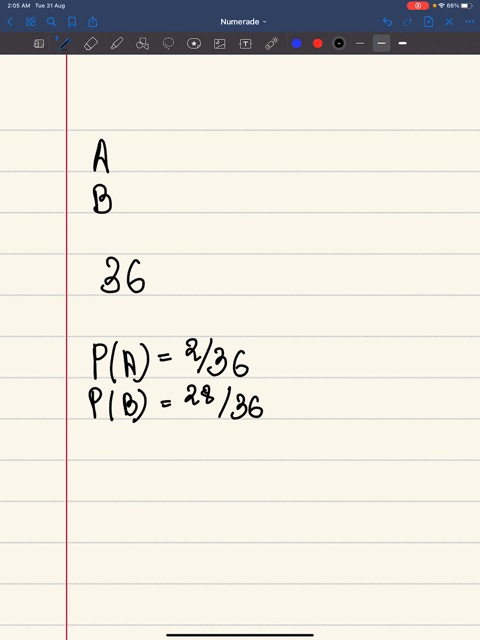 2:05 AM Tue 31 Aug 66%
Numerade
T
A
B
36
P(A) = 2/36
P(B) = 28/36